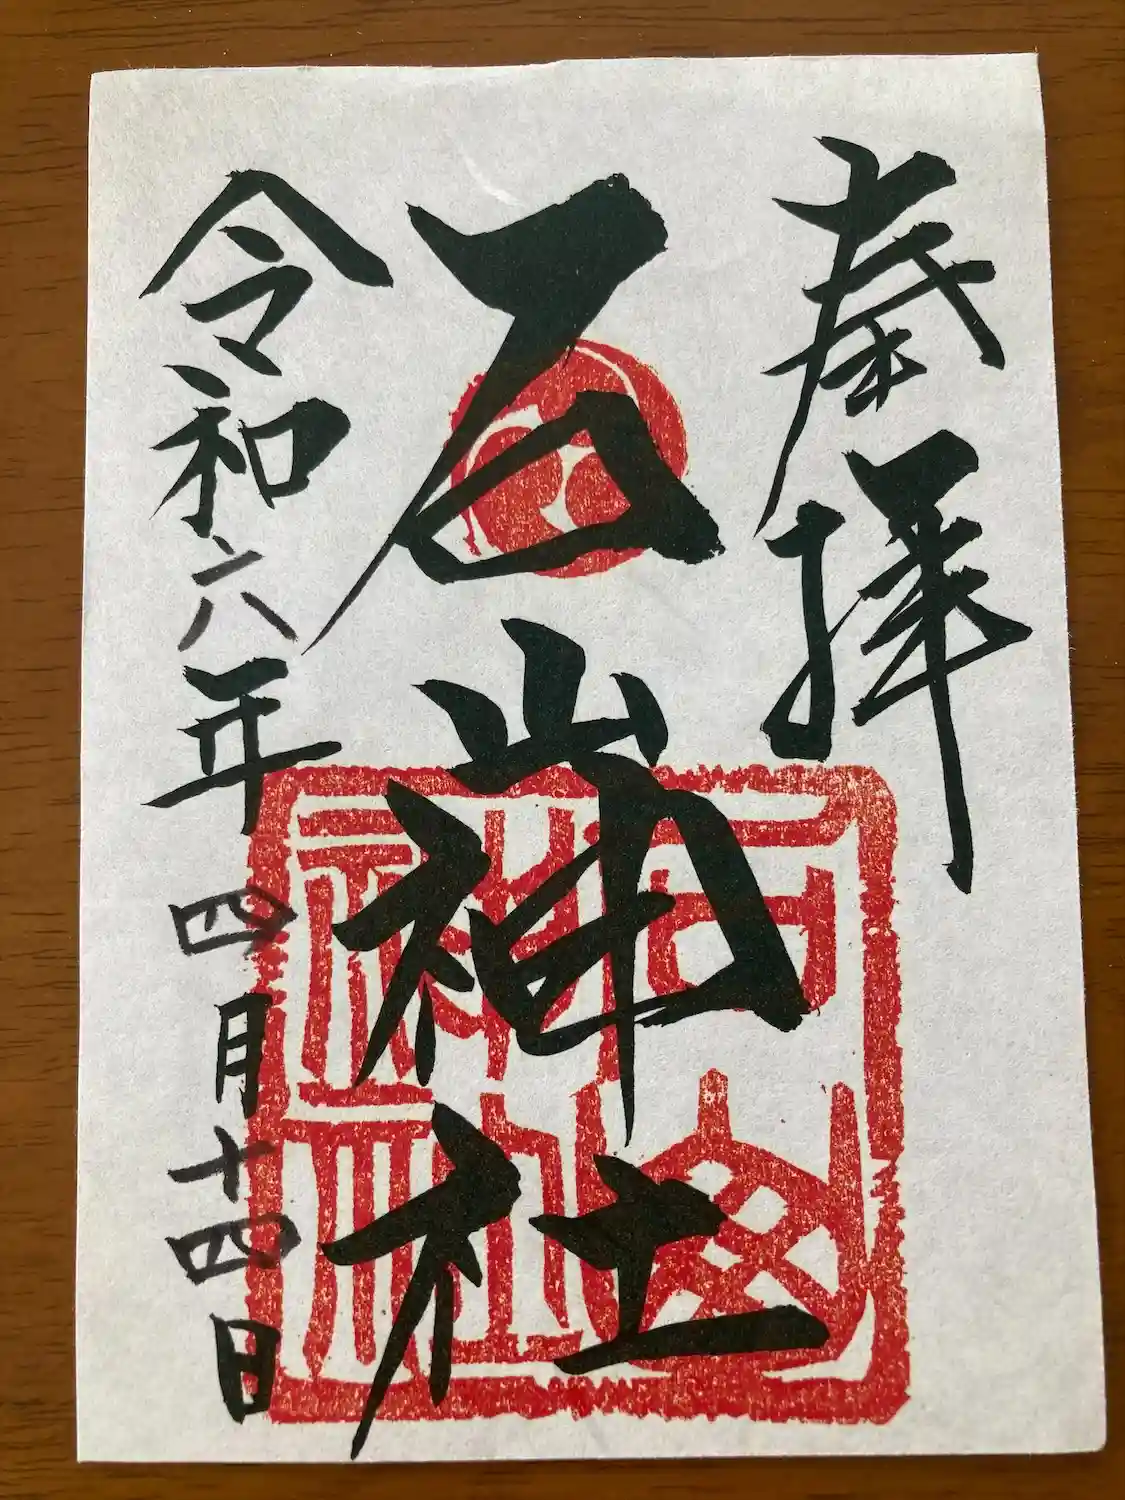 奉拝
石岡神社
令和六年四月十四日